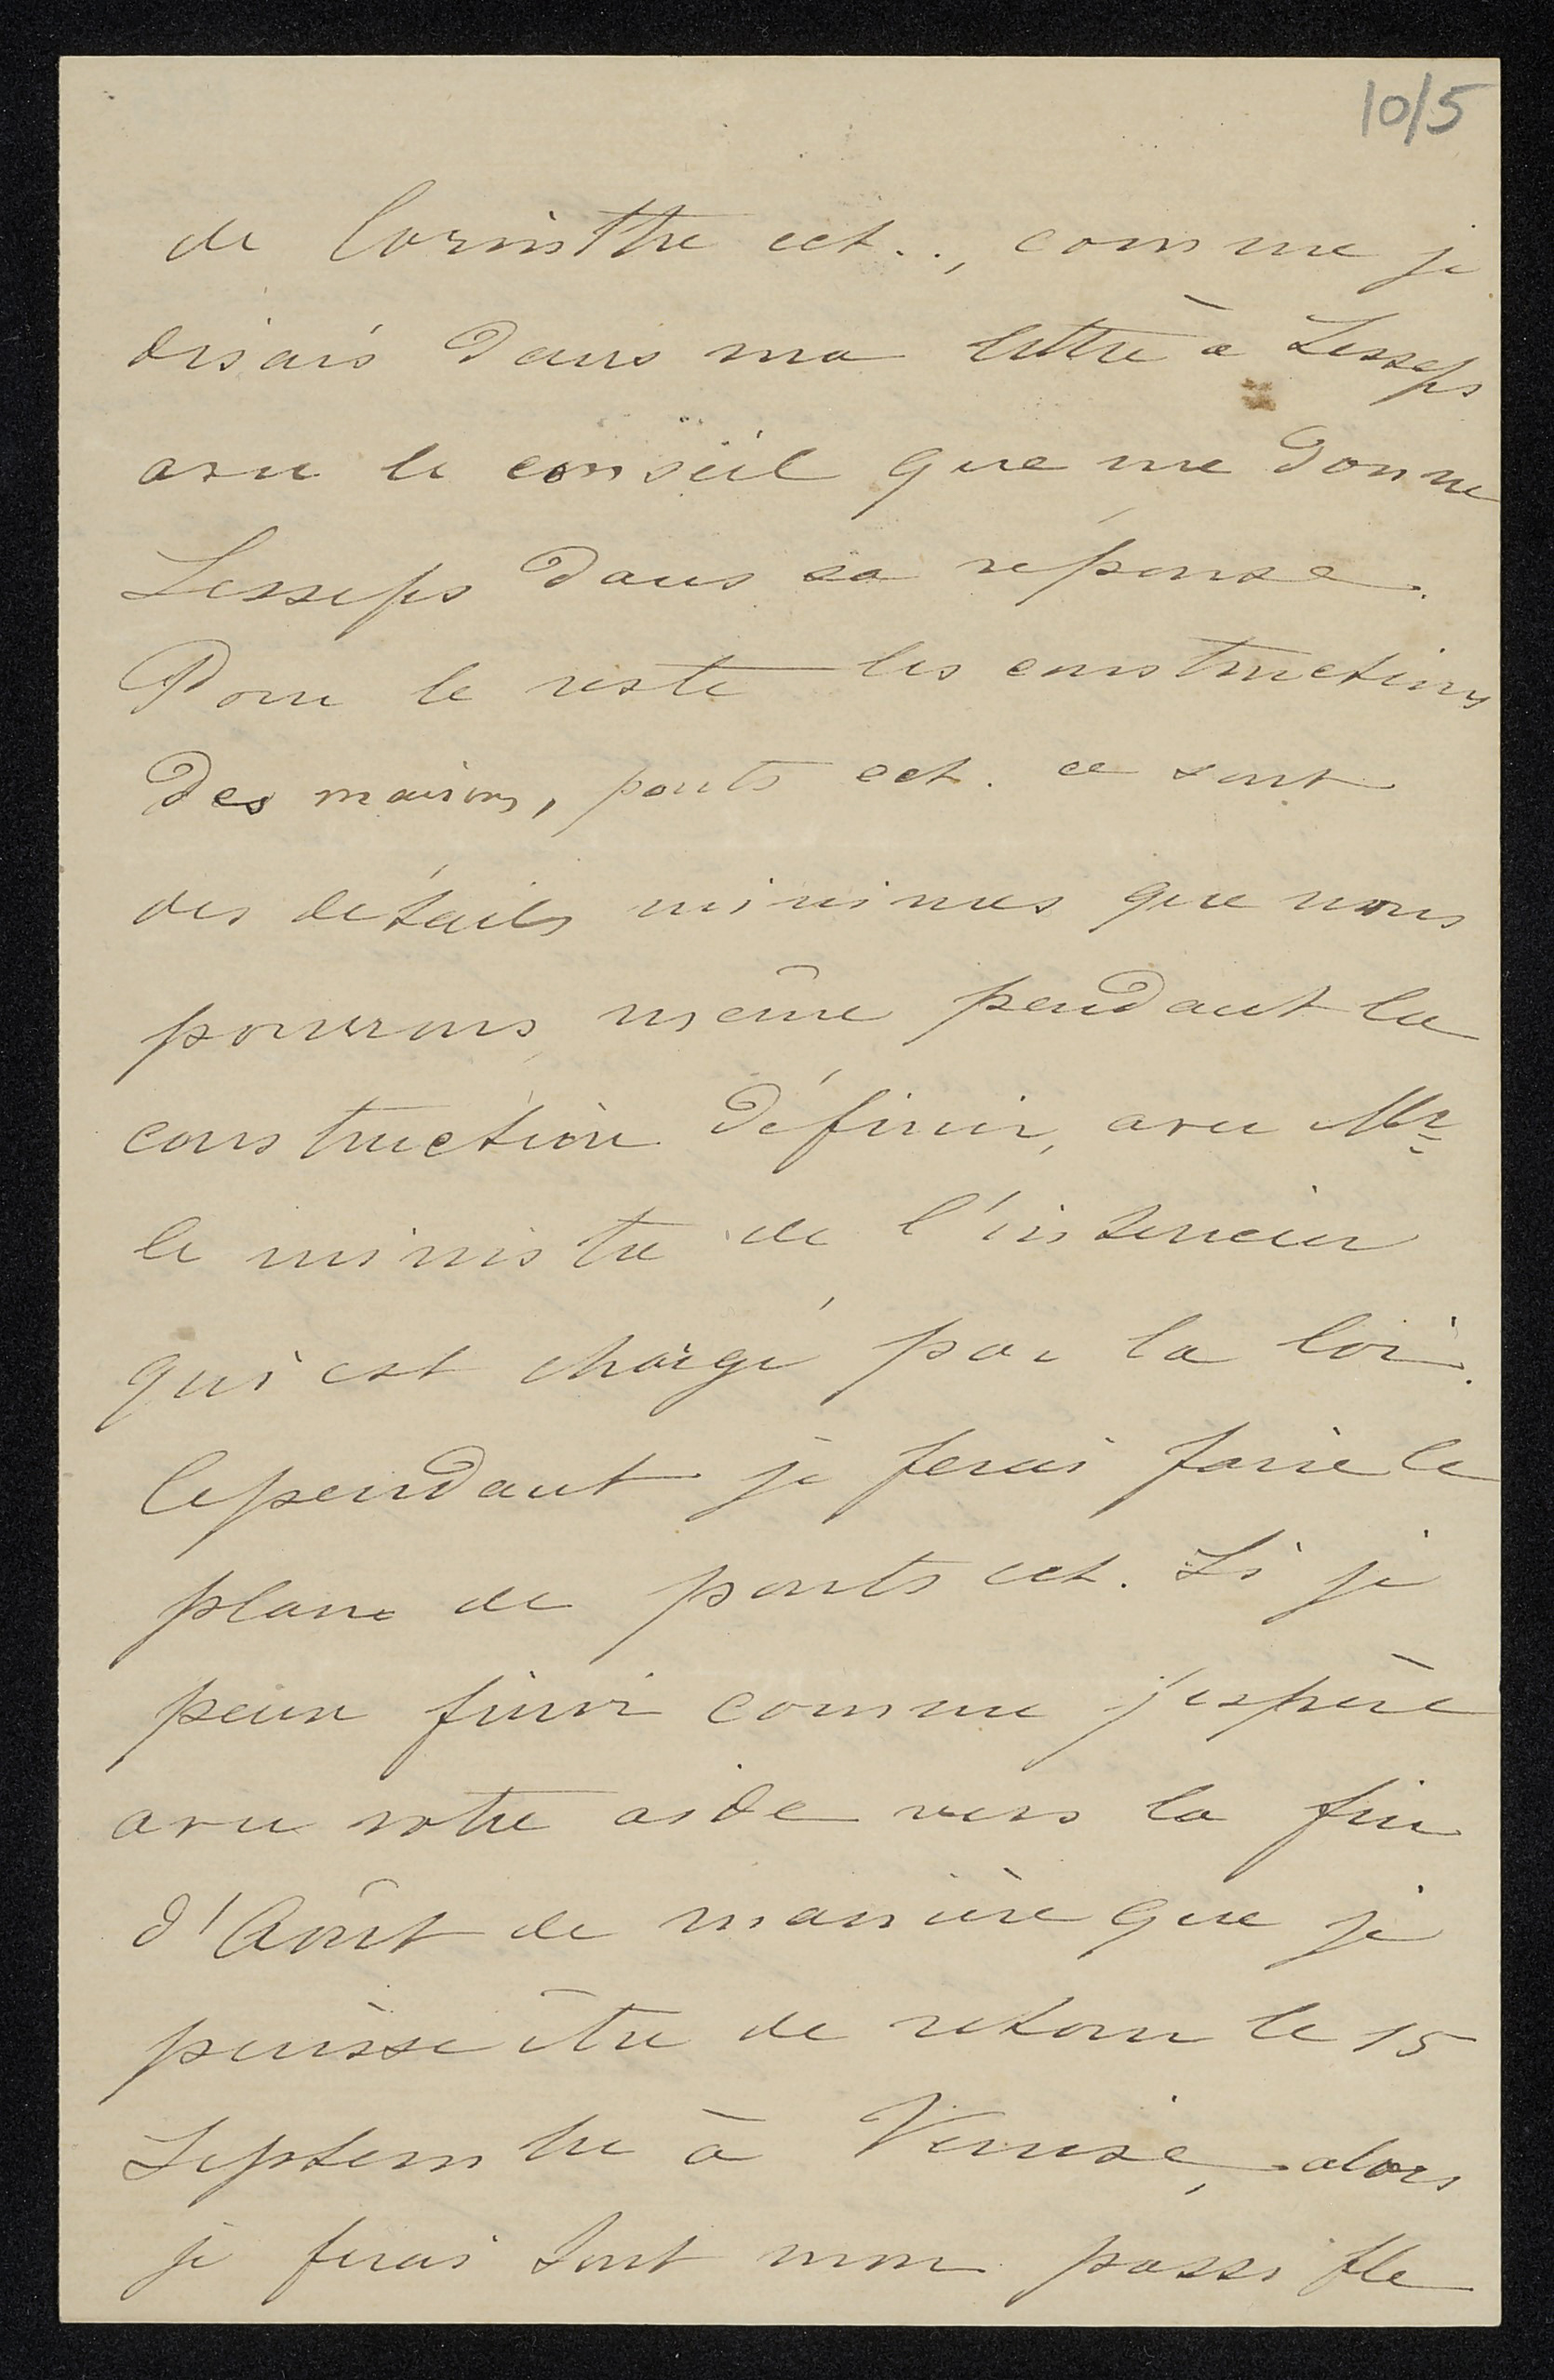 10/5
de Corinthe ect.., comme je
disais dans ma lettre à Lesseps
avec le conseil que me donne
Lesseps dans sa réponse.
Pour le reste les constructions
des maisons, ponts ect. ce sont
des détails minimes que nous
pourrons même pendant la
construction définir, avec Mr
le ministre de l'interieur
qui est chargé par la loi.
Cependant je ferai faire le
plan de ponts ect. Si je
peux finir comme j'espère
avec votre aide vers la fin
d'Août de manière que je
puisse être de retour le 15
Septembre à Venise, alors
je ferai tout mon possible